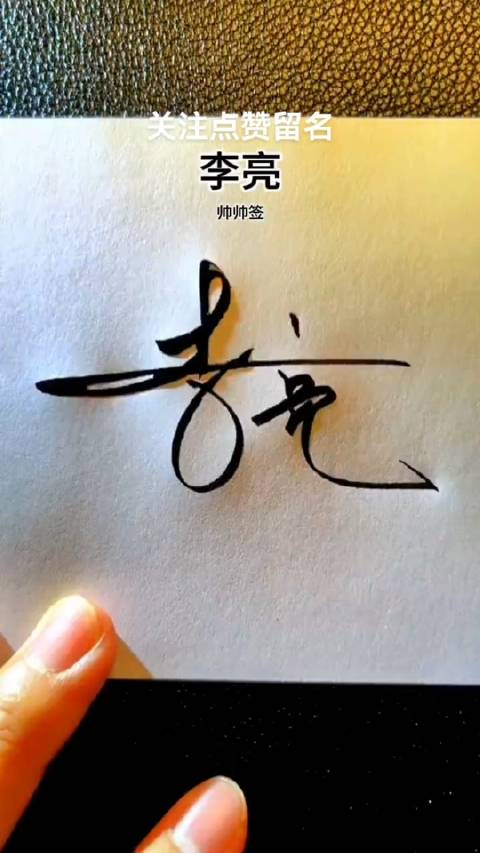 关注点赞留名
李亮
帅帅签
李亮